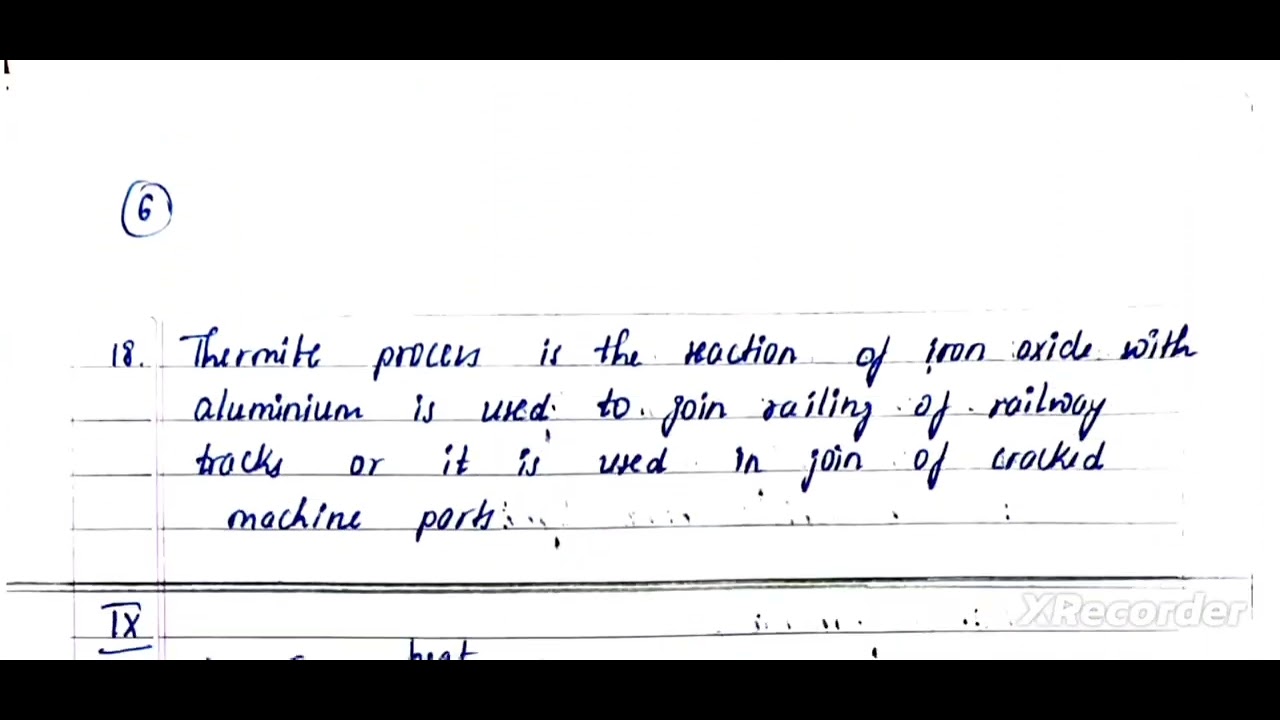 6
18. Thermite process is the reaction of iron oxide with
aluminium is used to join railing of railway
tracks or it is used in join of cracked
machine parts.
IX
heat
XRecorder